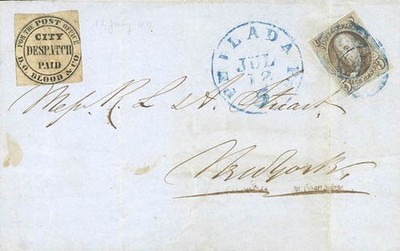 FOR THE POST OFFICE
CITY
DESPATCH
PAID
D.O. BLOOD & CO
PHILADA
JUL
12
Messrs. R L & A. Stuart.
New York.